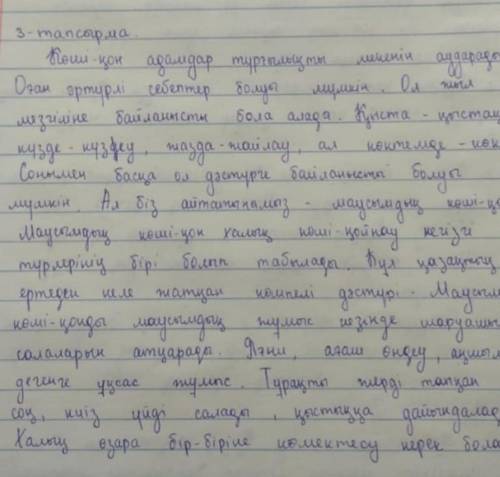 3-тапсырма.
Көші-қон адамдар тұрғылықты мекенін аударады
Оған әртүрлі себептер болуы мүмкін. Ол жыл
мезгіліне байланысты бола алада. Қыста - қыстац
күзде - күздеу, жазда - жайлау, ал көктемде - көк
Сонымен басқа ол дәстүрге байланысты болуы
мүмкін. Ал біз айтатынымыз - маусымдық көші-қо
Маусымдық көші-қон халық көші-қойнау негізгі
түрлерінің бірі болып табылады. Бұл қазақтың
ертеден келе жатқан көшпелі дәстүрі. Маусым
көші-қонды маусымдық жұмыс кезінде шаруашы
салаларын атқарады. Яғни, ағаш өңдеу, аңшы
дегенге ұқсас жұмыс. Тұрақты жерді тапқан
соң, киіз үйді салады, қыстыққа дайындалад
Халық өзара бір-біріне көмектесу керек бола